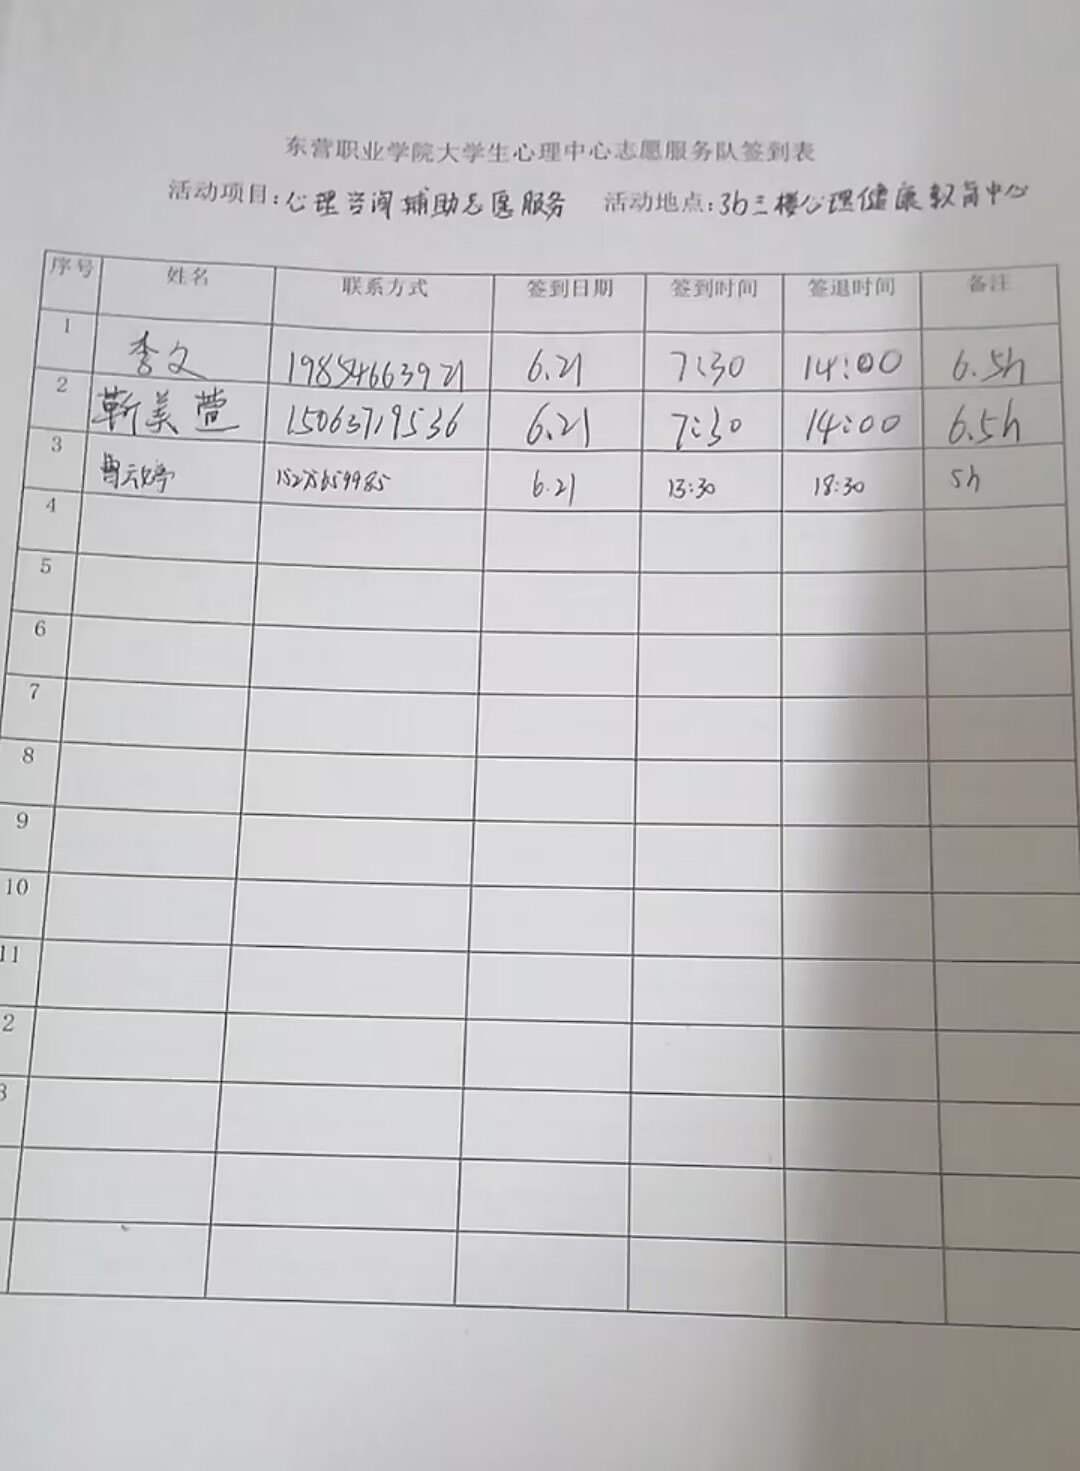 东营职业学院大学生心理中心志愿服务队签到表
活动项目:心理咨询辅助志愿服务 活动地点:3b三楼心理健康教育中心
序号 姓名 联系方式 签到日期 签到时间 签退时间 备注
1 李文 19854663921 6.21 7:30 14:00 6.5h
2 靳美萱 15063719536 6.21 7:30 14:00 6.5h
3 6.21 13:30 18:30 5h
4
5
6
7
8
9
10
11
2
3